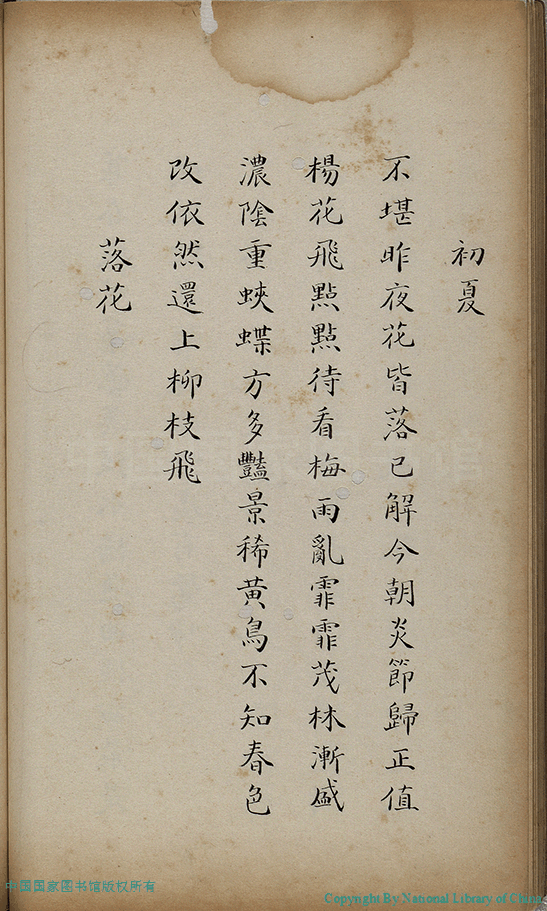 初夏
不堪昨夜花皆落已解今朝炎節歸正值
楊花飛點點待看梅雨亂霏霏茂林漸盛
濃陰重蛺蝶方多豔景稀黄鳥不知春色
改依然還上柳枝飛
落花
中国国家图书馆版权所有
Copyright By National Library of China